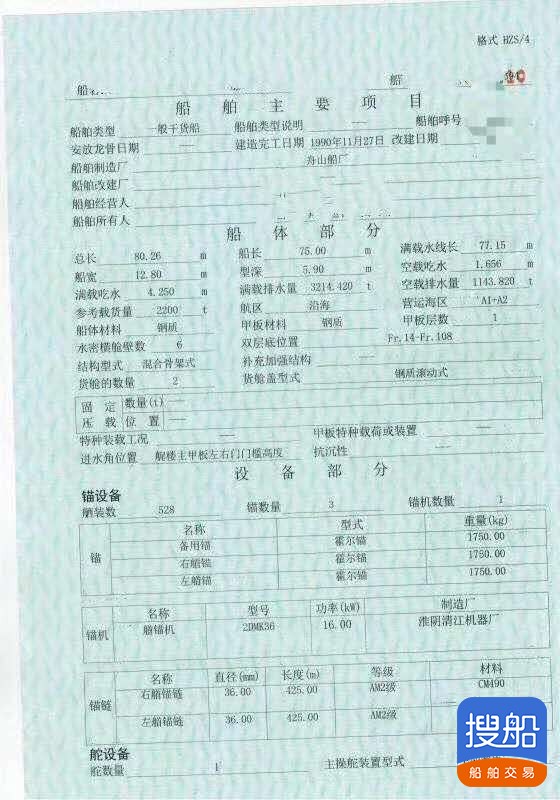 格式 HZS/4
船
船舶主要项目
船舶类型 一般干货船 船舶类型说明 — 船舶呼号
安放龙骨日期 — 建造完工日期 1990年11月27日 改建日期
船舶制造厂 舟山船厂
船舶改建厂
船舶经营人
船舶所有人
船体部分
总长 80.26 m 船长 75.00 m 满载水线长 77.15 m
船宽 12.80 m 型深 5.90 m 空载吃水 1.656 m
满载吃水 4.250 m 满载排水量 3214.420 t 空载排水量 1143.820 t
参考载货量 2200 t 航区 沿海 营运海区 A1+A2
船体材料 钢质 甲板材料 钢质 甲板层数 1
水密横舱壁数 6 双层底位置 Fr.14-Fr.108
结构型式 混合骨架式 补充加强结构 —
货舱的数量 2 货舱盖型式 钢质滚动式
固定压载 数量(t) —
位置 —
特种装载工况 — 甲板特种载荷或装置 —
进水角位置 艉楼主甲板左右门门槛高度 抗沉性 —
设备部分
锚设备
舾装数 528 锚数量 3 锚机数量 1
锚 名称 型式 重量(kg)
备用锚 霍尔锚 1750.00
右艏锚 霍尔锚 1750.00
左艏锚 霍尔锚 1750.00
锚机 名称 型号 功率(kW) 制造厂
艏锚机 2DMK36 16.00 淮阴清江机器厂
锚链 名称 直径(mm) 长度(m) 等级 材料
右艏锚链 36.00 425.00 AM2级 CM490
左艏锚链 36.00 425.00 AM2级
舵设备
舵数量 1 主操舵装置型式
搜船
船舶交易